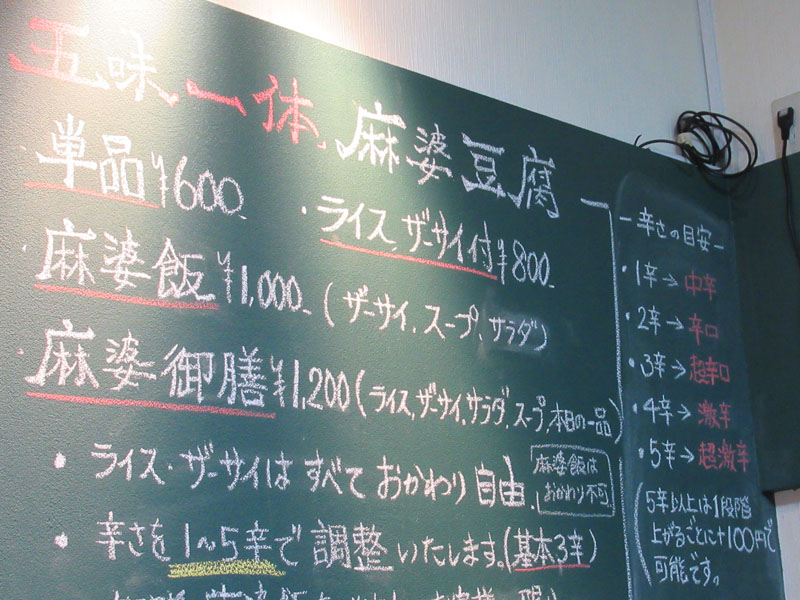 五味一体 麻婆豆腐
・単品 ¥600.
・ライス、ザーサイ付 ¥800.
・麻婆飯 ¥1,000. (ザーサイ、スープ、サラダ)
・麻婆御膳 ¥1,200 (ライス、ザーサイ、サラダ、スープ、本日の一品)
・ライス・ザーサイはすべておかわり自由.
麻婆飯は
おかわり不可
・辛さを1〜5辛で調整いたします。(基本3辛)
ー辛さの目安ー
・1辛→中辛
・2辛→辛口
・3辛→超辛口
・4辛→激辛
・5辛→超激辛
(5辛以上は1段階
上がるごとに+100円で
可能です。